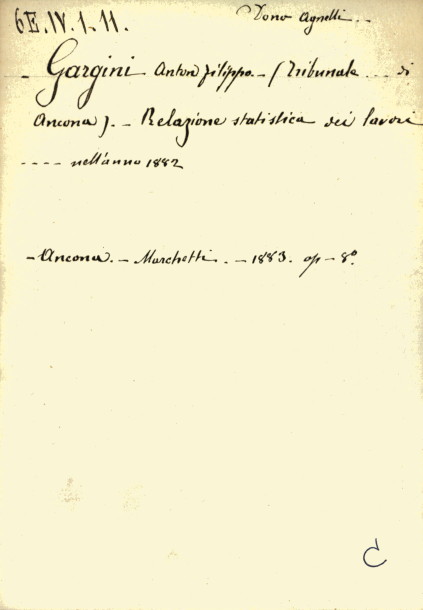 6E.IV.1.11.
Dono Agnelli. -
- Gargini Anton Filippo. - (Tribunale ... di
Ancona). - Relazione statistica dei lavori
---- nell'anno 1882
- Ancona. - Marchetti. - 1883. op - 8°.
C